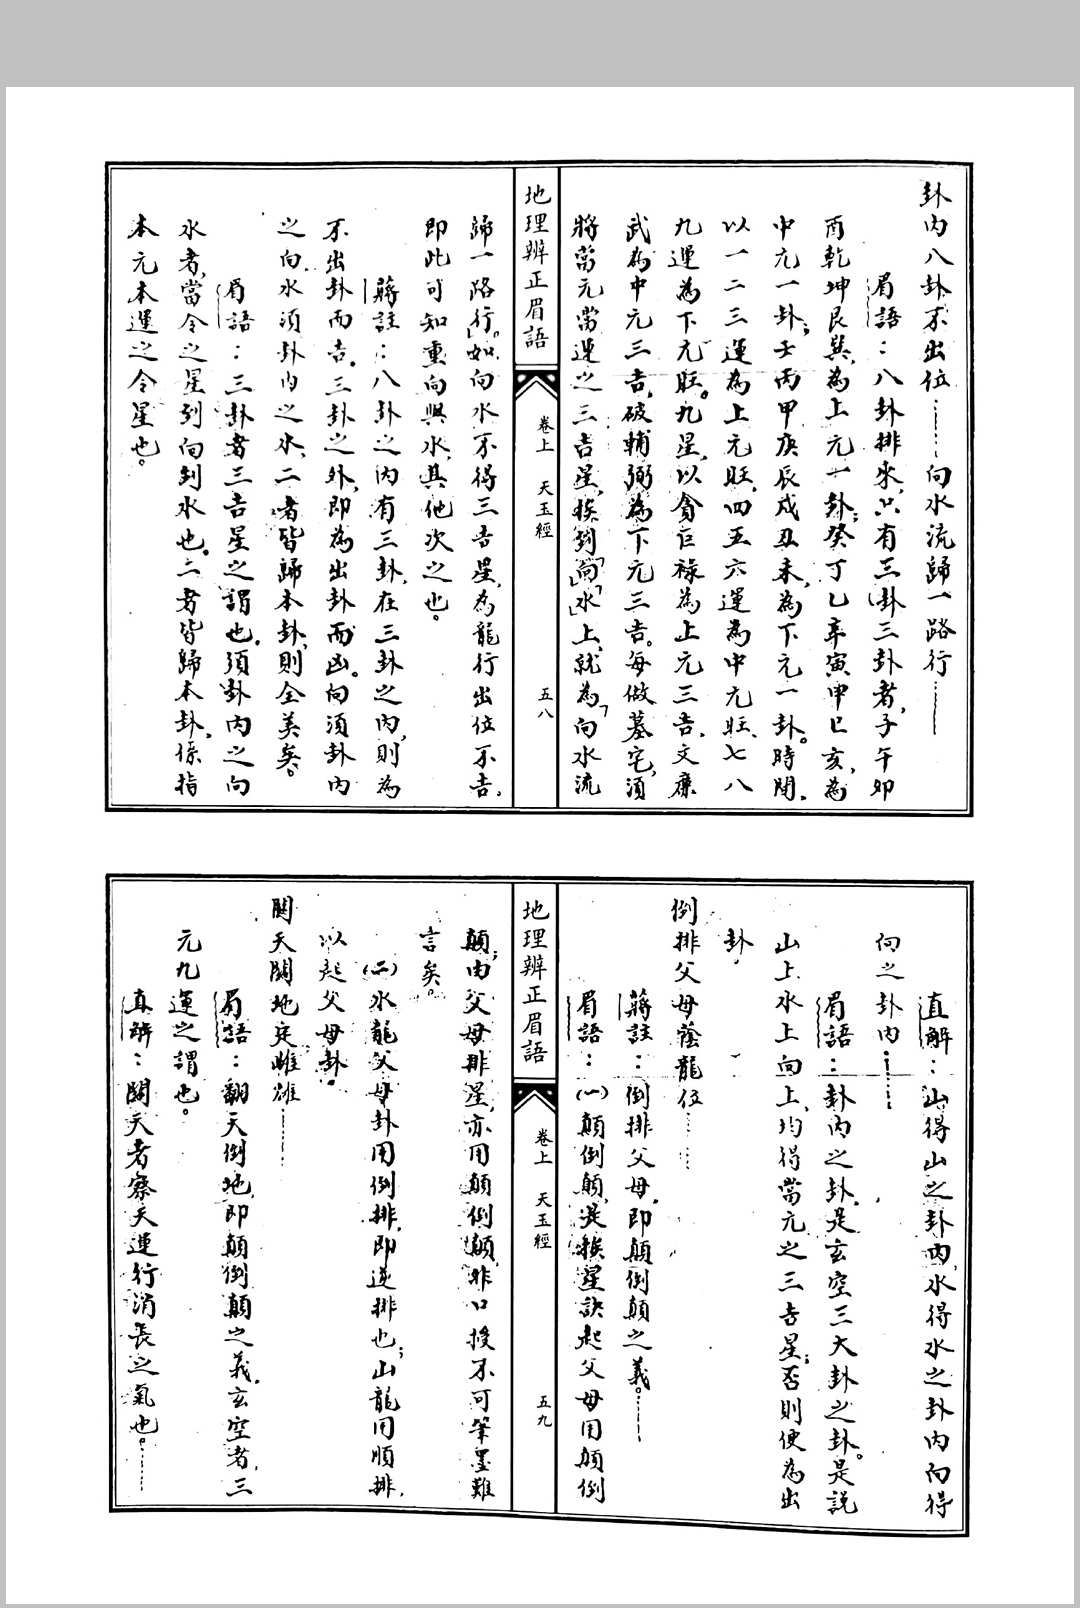 卦內八卦不出位……向水流歸一路行……
眉語：八卦排來，只有三卦三卦者，子午卯
酉乾坤艮巽，為上元一卦；癸丁乙辛寅申巳亥，為
中元一卦；壬丙甲庚辰戌丑未，為下元一卦。時間，
以一二三運為上元旺，四五六運為中元旺，七八
九運為下元旺。九星，以貪巨祿為上元三吉，文廉
武為中元三吉，破輔弼為下元三吉。每做墓宅，須
將當元當運之三吉星，挨到「向」「水」上，就為「向水流
地理辨正眉語
卷上 天玉經
五八
歸一路行」。如向水不得三吉星，為龍行出位不吉，
即此可知重向與水，其他次之也。
蔣註：八卦之內有三卦，在三卦之內，則為
不出卦而吉。三卦之外，即為出卦而凶。向須卦內
之向，水須卦內之水，二者皆歸本卦，則全美矣。
眉語：三卦者三吉星之謂也。須卦內之向
水者，當令之星到向到水也。二者皆歸本卦，係指
本元本運之令星也。
直解：山得山之卦內，水得水之卦內，向得
向之卦內……
眉語：卦內之卦，是玄空三大卦之卦。是說
山上水上向上，均得當元之三吉星；否則便為出
卦。
倒排父母蔭龍位……
蔣註：倒排父母，即顛倒顛之義。……
眉語：(一)顛倒顛，是挨星訣起父母用顛倒
地理辨正眉語
卷上 天玉經
五九
顛；由父母排星，亦用顛倒顛，非口授不可筆墨難
言矣。
(二)水龍父母卦用倒排，即逆排也；山龍用順排，
以起父母卦。
關天關地定雌雄……
眉語：翻天倒地，即顛倒顛之義。玄空者，三
元九運之謂也。
直解：關天者察天運行消長之氣也。……